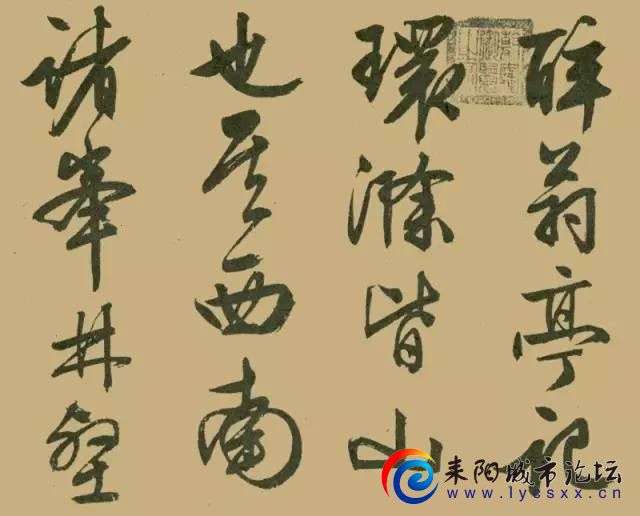 醉翁亭記
環滁皆山
也其西南
諸峯林壑
耒阳城市论坛
www.lycsxx.cn